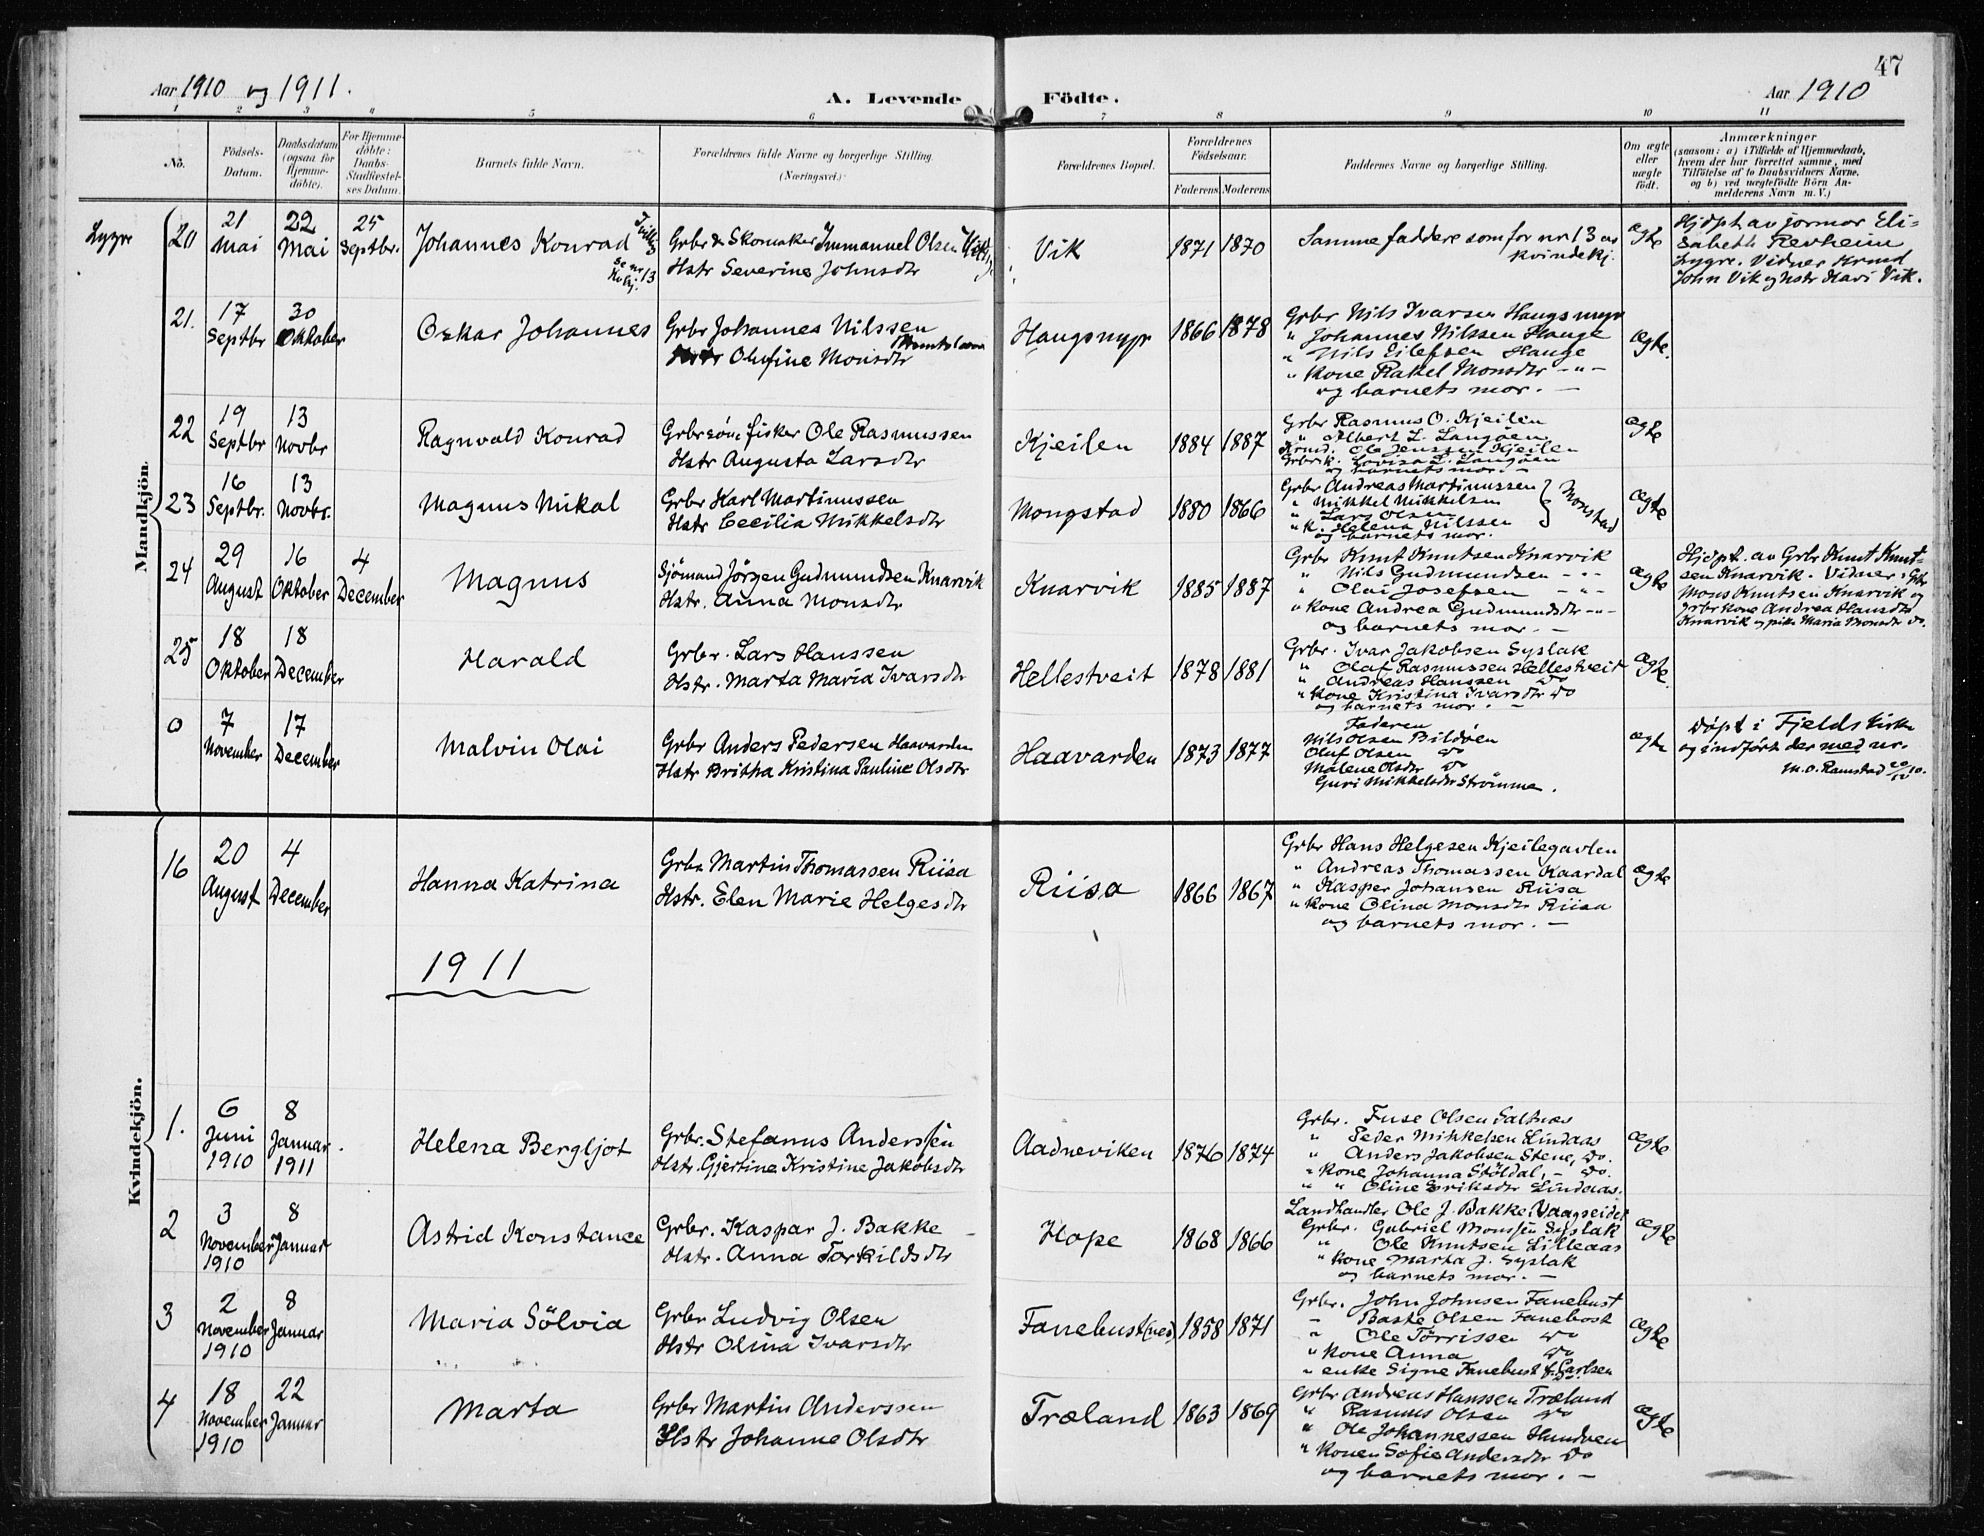 47
Aar 1910 og 1911.
A. Levende Födte.
Aar 1910
1 2 3 4 5 6 7 8 9 10 11
No.
Födsels-
Datum.
Daabsdatum
(ogsaa for
Hjemme-
döbte).
For Hjemme-
döbte:
Daabs-
Stadfæstel-
ses Datum.
Barnets fulde Navn.
Forældrenes fulde Navne og borgerlige Stilling.
(Næringsvei.)
Forældrenes Bopæl.
Forældrenes
Födselsaar.
Faderens Moderens
Faddernes Navne og borgerlige Stilling.
Om ægte
eller
uægte
födt.
Anmærkninger
(saasom: a) i Tilfælde af Hjemmedaab,
hvem der har forrettet samme, med
Tilföielse af to Daabsvidners Navne,
og b) ved uægtefödte Börn An-
melderens Navn m. V.)
Mandkjön.
Lygre
20
21
Mai
22
Mai
25
Septbr.
Johannes Konrad
Tvilling
se nr 13
Kvkj.
Grbr & Skomaker Immanuel Olsen Vik
Hstr Severine Johnsdtr
Vik
1871 1870
Samme faddere som for nr 13 av
kvindekj.
Ægte
Hjdpt av jormor Eli-
sabeth Revheim
Lygre. Vidner Krmd
John Vik og hstr Kari Vik.
21.
17
Septbr
30
Oktober
Oskar Johannes
Grbr Johannes Nilssen
Hstr Olufine Monsdtr
Haugsmyr
1866 1878
Grbr Nils Ivarsen Haugsmyr
" Johannes Nilssen Hauge
" Nils Eilefsen Hauge
" Kone Rakel Monsdtr -"-
og barnets mor. -
Ægte.
22
19
Septbr
13
Novbr
Ragnvald Konrad
Grbrsön fisker Ole Rasmussen
Hstr Augusta Larsdtr
Kjeilen
1884 1887
Grbr Rasmus O. Kjeilen
" Albert L. Langöen
Krmd. Ole Jenssen Kjeilen
Grbrk. Lovisa L. Langöen
og barnets mor. -
Ægte
23
16
Septbr.
13
Novbr.
Magnus Mikal
Grbr Karl Martinussen
Hstr Cecilia Mikkelsdtr
Mongstad
1880 1866
Grbr Andreas Martinussen
" Mikkel Mikkelsen
" Lars Olsen
" k. Helena Nilssen
og barnets mor.
} Monstad
Ægte
24
29
August
16
Oktober
4
December
Magnus
Sjömand Jörgen Gudmundsen Knarvik
Hstr. Anna Monsdtr
Knarvik
1885 1887
Grbr Knut Knutsen Knarvik
" Nils Gudmundsen -"-
" Olai Josefsen -"-
" Kone Andrea Gudmundsdtr -"-
og barnets mor. -
Ægte
Hjdpt. av Grbr Knut Knut-
sen Knarvik. Vidner: Grbr
Mons Knutsen Knarvik og
Grbr kone Andrea Hansdtr
Knarvik og pike Maria Monsdtr do.
25
18
Oktober
18
December
Harald
Grbr. Lars Hanssen
Hstr. Marta Maria Ivarsdtr
Hellestveit
1878 1881
Grbr. Ivar Jakobsen Syslak
" Olaf Rasmussen Hellestveit
" Andreas Hanssen do
" Kone Kristina Ivarsdtr do
og barnets mor. -
Ægte.
0
7
November
17
December
Malvin Olai
Grbr Anders Pedersen Haavarden
Hstr Britha Kristina Pauline Olsdtr
Haavarden
1873 1877
Faderen
Nils Olsen Bildöen
Oluf Olsen do
Malene Olsdtr do
Guri Mikkelsdtr Strömme.
ægte
Döpt i Fjelds kirke
og indfört der med nr.
M.O. Ramstad 20/12 10.
Kvindekjön.
16
20
August
4
December
Hanna Katrina
Grbr Martin Thomassen Riisa
Hstr. Elen Marie Helgesdtr
Riisa
1866 1867
Grbr Hans Helgesen Kjeilegavlen
" Andreas Thomassen Kaardal
" Kasper Johansen Riisa
" Kone Olina Monsdtr Riisa
og barnets mor. -
Ægte
1911
1.
6
Juni
1910
8
Januar
1911
Helena Bergljot
Grbr. Stefanus Anderssen
Hstr. Gjertine Kristine Jakobsdtr
Aadneviken
1876 1874
Grbr. Fuse Olsen Saltnes
" Peder Mikkelsen Lindaas
" Anders Jakobsen Stene, do.
" Kone Johanna Stöldal, - do.
" " Oline Eriksdtr Lindaas.
Ægte
2
3
November
1910
8
Januar
Astrid Konstance
Grbr. Kaspar J. Bakke
Hstr. Anna Torkildsdtr
Hope
1868 1866
Landhandler Ole J. Bakke Vaagseidet
Grbr. Gabriel Monssen Syslak
" Ole Knutsen Lilleaas
" Kone Marta J. Syslak
og barnets mor. -
Ægte
3
2
November
1910
8
Januar
Maria Sölvia
Grbr Ludvig Olsen
Hstr Olina Ivarsdtr
Fanebust (ned)
1858 1871
Grbr. John Johnsen Fanebust
" Baste Olsen Fanebost
" Ole Törrissen do
" Kone Anna do
" enke Signe Fanebust f. Carlsen
Ægte
4
18
November
1910
22
Januar
Marta
Grbr Martin Anderssen
Hstr Johanne Olsdtr
Træland
1863 1869
Grbr Andreas Hanssen Træland
" Rasmus Olsen do
" Ole Johannessen Hundven
" Konen Sofie Andersdtr do
og barnets mor. -
Ægte